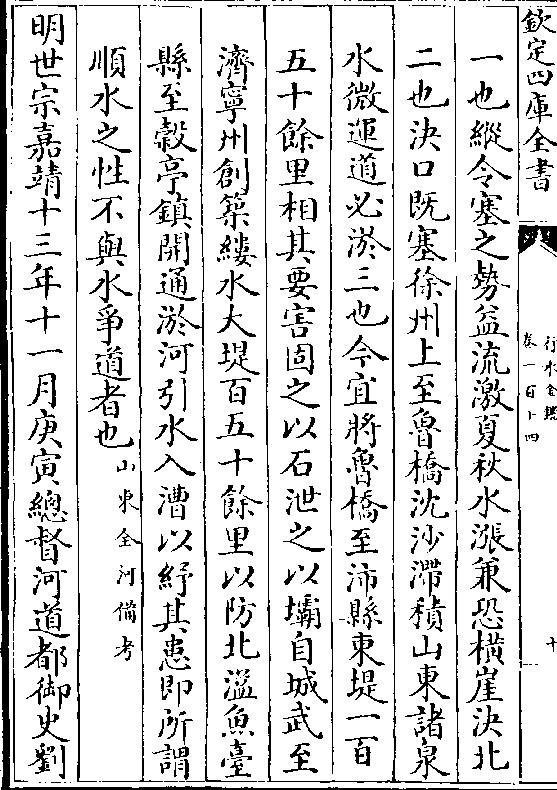 欽定四庫全書
行水金鑑
卷一百十四
十
一也縱令塞之勢益流激夏秋水漲兼恐橫崖決北
二也決口既塞徐州上至魯橋沈沙滯積山東諸泉
水微運道必淤三也今宜將魯橋至沛縣東堤一百
五十餘里相其要害固之以石泄之以壩自城武至
濟寧州創築縷水大堤百五十餘里以防北溢魚臺
縣至穀亭鎮開通淤河引水入漕以紓其患即所謂
順水之性不與水爭道者也山東全河備考
明世宗嘉靖十三年十一月庚寅總督河道都御史劉